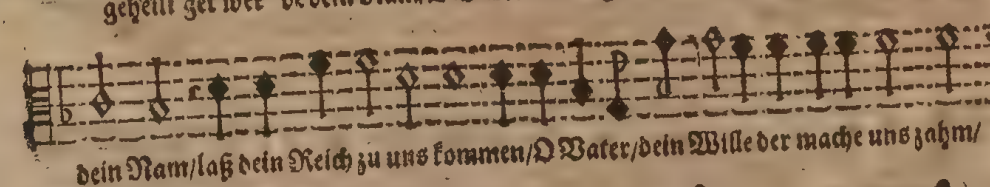 geheili get wer
dein Nam/laß dein Reich zu uns kommen/O Vater/dein Wille der mache uns zahm/